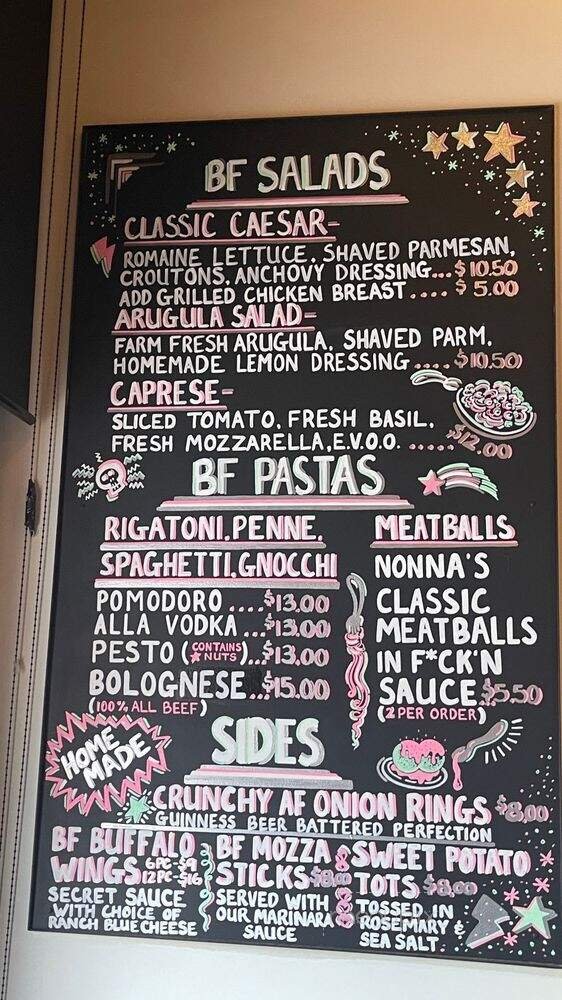 BF SALADS
CLASSIC CAESAR-
ROMAINE LETTUCE, SHAVED PARMESAN,
CROUTONS, ANCHOVY DRESSING... $10.50
ADD GRILLED CHICKEN BREAST.... $5.00
ARUGULA SALAD-
FARM FRESH ARUGULA, SHAVED PARM,
HOMEMADE LEMON DRESSING.... $10.50
CAPRESE-
SLICED TOMATO, FRESH BASIL,
FRESH MOZZARELLA, E.V.O.O. ..... $12.00
BF PASTAS
RIGATONI, PENNE,
SPAGHETTI, GNOCCHI
POMODORO.... $13.00
ALLA VODKA... $13.00
PESTO (CONTAINS NUTS)... $13.00
BOLOGNESE... $15.00
(100% ALL BEEF)
MEATBALLS
NONNA'S
CLASSIC
MEATBALLS
IN F*CK'N
SAUCE $5.50
(2 PER ORDER)
HOME
MADE
SIDES
CRUNCHY AF ONION RINGS $8.00
GUINNESS BEER BATTERED PERFECTION
BF BUFFALO
WINGS 6PC-$9
12PC-$16
SECRET SAUCE
WITH CHOICE OF
RANCH BLUE CHEESE
BF MOZZA
STICKS $8.00
SERVED WITH
OUR MARINARA
SAUCE
SWEET POTATO
TOTS $8.00
TOSSED IN
ROSEMARY &
SEA SALT.